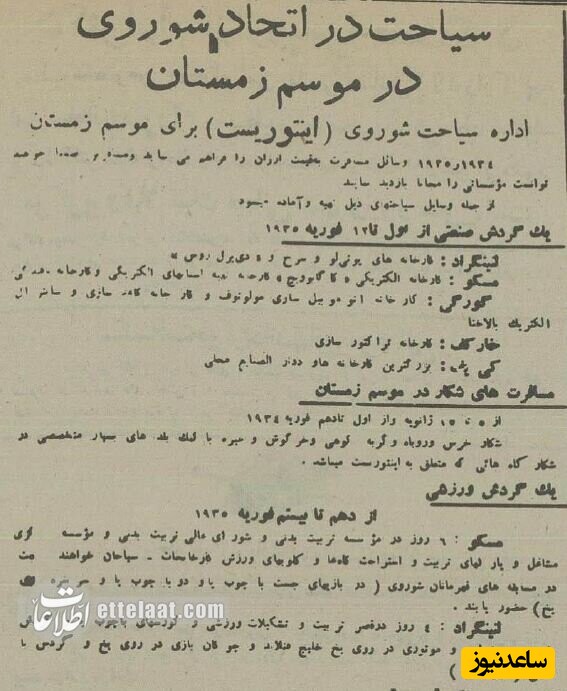 سیاحت در اتحاد شوروی
در موسم زمستان
اداره سیاحت شوروی ( اینتوریست ) برای موسم زمستان
۱۹۳۴ر۱۹۳۵ وسائل مسافرت بقیمت ارزان را فراهم می
توانست مؤسساتی را مجانا بازدید نمایند
از جمله وسایل سیاحتهای ذیل تهیه و آماده میشود
یك گردش صنعتی از اول تا ۱۲ فوریه ۱۹۳۵
لنینگراد : کارخانه های پوتی‌لو و سرخ و
مسکو : کارخانه الکتریکی کارخانه اسبابهای الکتریکی و کارخانه
گورگی : کارخانه اتوموبیل سازی مولوتوف و کارخانه کاغذ سازی و سانترال
الکتریك بالاخنا
خارکف : کارخانه تراکتور سازی
کی یف : بزرگترین کارخانه ها و دوایر الصنایع محلی
مسافرت های شکار در موسم زمستان
از ۵ تا ۱۵ ژانویه و از اول تا دهم فوریه ۱۹۳۴
شکار خرس و روباه و گربه کوهی و خرگوش و غیره با کمك بلد های بسیار متخصصی در
شکار گاه هائی که متعلق به اینتوریست میباشد .
یك گردش ورزشی
از دهم تا بیستم فوریه ۱۹۳۵
مسکو : ۶ روز در مؤسسه تربیت بدنی و شورای عالی تربیت بدنی و مؤسسه
مشاغل و پارکهای تربیت و استراحت گاهها و کلوبهای ورزش کارخانجات ـ سیاحان خواهند
در مسابقه های قهرمانان شوروی ( در بازیهای جست با چوب پا و دو با چوب پا و
یخ ) حضور یابند .
لنینگراد : ۴ روز در قصر تربیت و تشکیلات ورزشی و کورسهای با چوب
و موتوری در روی یخ خلیج فنلاند و چوگان بازی در روی یخ و گردش با
اطلاعات ettelaat.com
ساعدنیوز